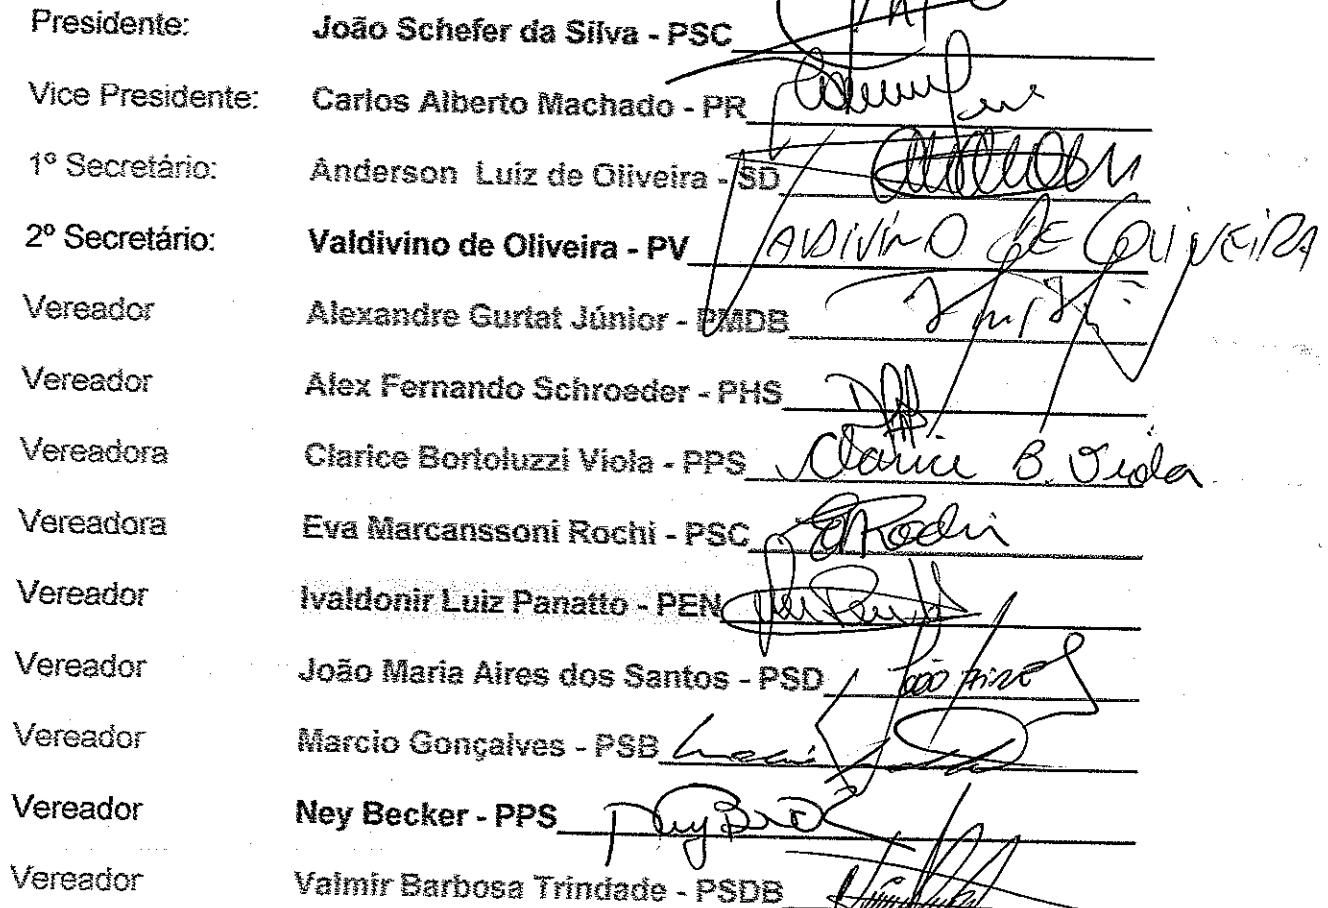 Presidente: João Schefer da Silva - PSC
Vice Presidente: Carlos Alberto Machado - PR
1º Secretário: Anderson Luiz de Oliveira - SD
2º Secretário: Valdivino de Oliveira - PV VALDIVINO DE OLIVEIRA
Vereador Alexandre Gurtat Júnior - PMDB
Vereador Alex Fernando Schroeder - PHS
Vereadora Clarice Bortoluzzi Viola - PPS Clarice B. Viola
Vereadora Eva Marcanssoni Rochi - PSC ERochi
Vereador Ivaldonir Luiz Panatto - PEN
Vereador João Maria Aires dos Santos - PSD João Aires
Vereador Marcio Gonçalves - PSB
Vereador Ney Becker - PPS
Vereador Valmir Barbosa Trindade - PSDB